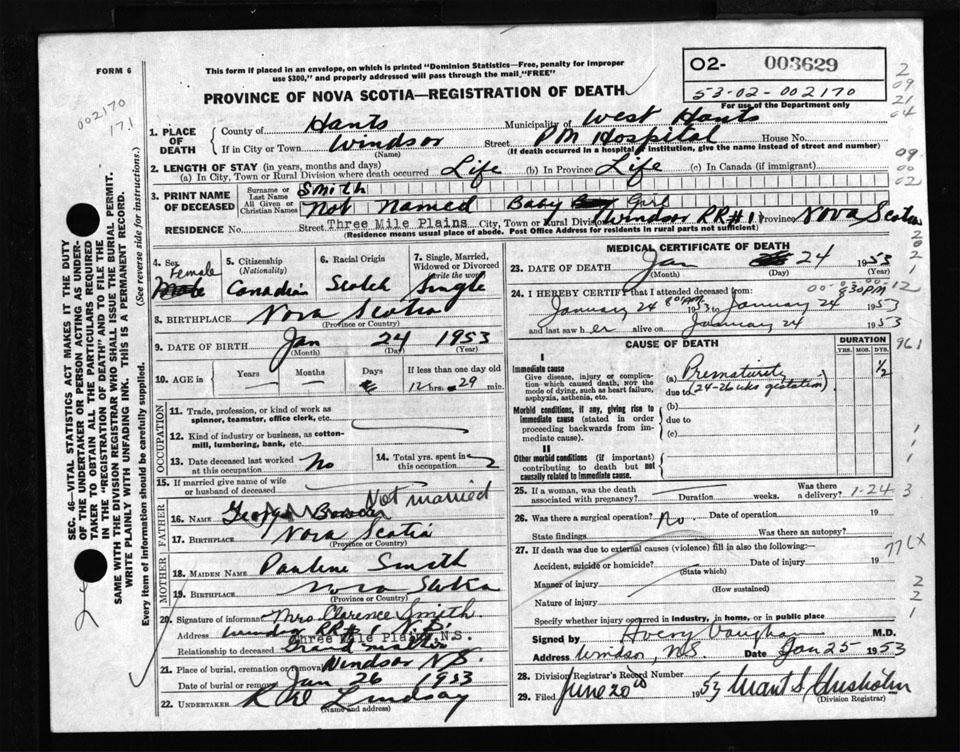 FORM 6
This form if placed in an envelope, on which is printed "Dominion Statistics—Free, penalty for improper
use $300," and properly addressed will pass through the mail "FREE"
PROVINCE OF NOVA SCOTIA—REGISTRATION OF DEATH
O2- 003629
53-02-002170
For use of the Department only
002170
17.1
2
09
21
04
09
00
02
SEC. 46—VITAL STATISTICS ACT MAKES IT THE DUTY
OF THE UNDERTAKER OR PERSON ACTING AS UNDER-
TAKER TO OBTAIN ALL THE PARTICULARS REQUIRED
IN THE "REGISTRATION OF DEATH" AND TO FILE THE
SAME WITH THE DIVISION REGISTRAR WHO SHALL ISSUE THE BURIAL PERMIT.
WRITE PLAINLY WITH UNFADING INK. THIS IS A PERMANENT RECORD.
Every item of information should be carefully supplied. (See reverse side for instructions.)
1. PLACE OF DEATH
County of Hants Municipality of West Hants
If in City or Town Windsor Street PM Hospital House No.
(Name) (If death occurred in a hospital or institution, give the name instead of street and number)
2. LENGTH OF STAY (in years, months and days)
(a) In City, Town or Rural Division where death occurred Life (b) In Province Life (c) In Canada (if immigrant)
3. PRINT NAME OF DECEASED
Surname or Last Name Smith
All Given or Christian Names Not Named Baby Girl
RESIDENCE No. Street Three Mile Plains City, Town or Rural Division Windsor RR#1 Province Nova Scotia
(Residence means usual place of abode. Post Office Address for residents in rural parts not sufficient)
4. Sex Female
5. Citizenship (Nationality) Canadian
6. Racial Origin Scotch
7. Single, Married, Widowed or Divorced (write the word) Single
8. BIRTHPLACE Nova Scotia
(Province or Country)
9. DATE OF BIRTH Jan 24 1953
(Month) (Day) (Year)
10. AGE in Years Months Days If less than one day old
12 hrs. 29 min.
OCCUPATION
11. Trade, profession, or kind of work as spinner, teamster, office clerk, etc.
12. Kind of industry or business, as cotton-mill, lumbering, bank, etc.
13. Date deceased last worked at this occupation No
14. Total yrs. spent in this occupation
15. If married give name of wife or husband of deceased
Not married
FATHER
16. NAME George
17. BIRTHPLACE Nova Scotia
(Province or Country)
MOTHER
18. MAIDEN NAME Pauline Smith
19. BIRTHPLACE Nova Scotia
(Province or Country)
20. Signature of informant Mrs Clarence Smith
Address Windsor RR#1 N.S.
Three Mile Plains, N.S.
Relationship to deceased Grand mother
21. Place of burial, cremation or removal Windsor N.S.
Date of burial or removal Jan 26 1953
22. UNDERTAKER Lindsay
(Name and address)
MEDICAL CERTIFICATE OF DEATH
23. DATE OF DEATH Jan 24 1953
(Month) (Day) (Year)
24. I HEREBY CERTIFY that I attended deceased from: 00-00-00-12
8:30PM
January 24 1953 to January 24 1953
and last saw her alive on January 24 1953
CAUSE OF DEATH
DURATION
YRS. MOS. DYS.
I
Immediate cause
Give disease, injury or complication which caused death, NOT the mode of dying, such as heart failure, asphyxia, asthenia, etc.
(a) Prematurity ½
due to (24-26 wks gestation)
Morbid conditions, if any, giving rise to immediate cause (stated in order proceeding backwards from immediate cause).
(b)
due to
(c)
II
Other morbid conditions (if important) contributing to death but not causally related to immediate cause.
25. If a woman, was the death associated with pregnancy? Duration weeks. Was there a delivery? 1-24-3
26. Was there a surgical operation? No. Date of operation 19
State findings Was there an autopsy?
27. If death was due to external causes (violence) fill in also the following:—
Accident, suicide or homicide? Date of injury 19
(State which)
Manner of injury
(How sustained)
Nature of injury
Specify whether injury occurred in industry, in home, or in public place
Signed by Avery Vaughan M.D.
Address Windsor, N.S. Date Jan 25 1953
28. Division Registrar's Record Number
29. Filed June 20th 1953 Grant S. Chisholm
(Division Registrar)
2
0
2
1
961
1
1
776X
2
2
1
2